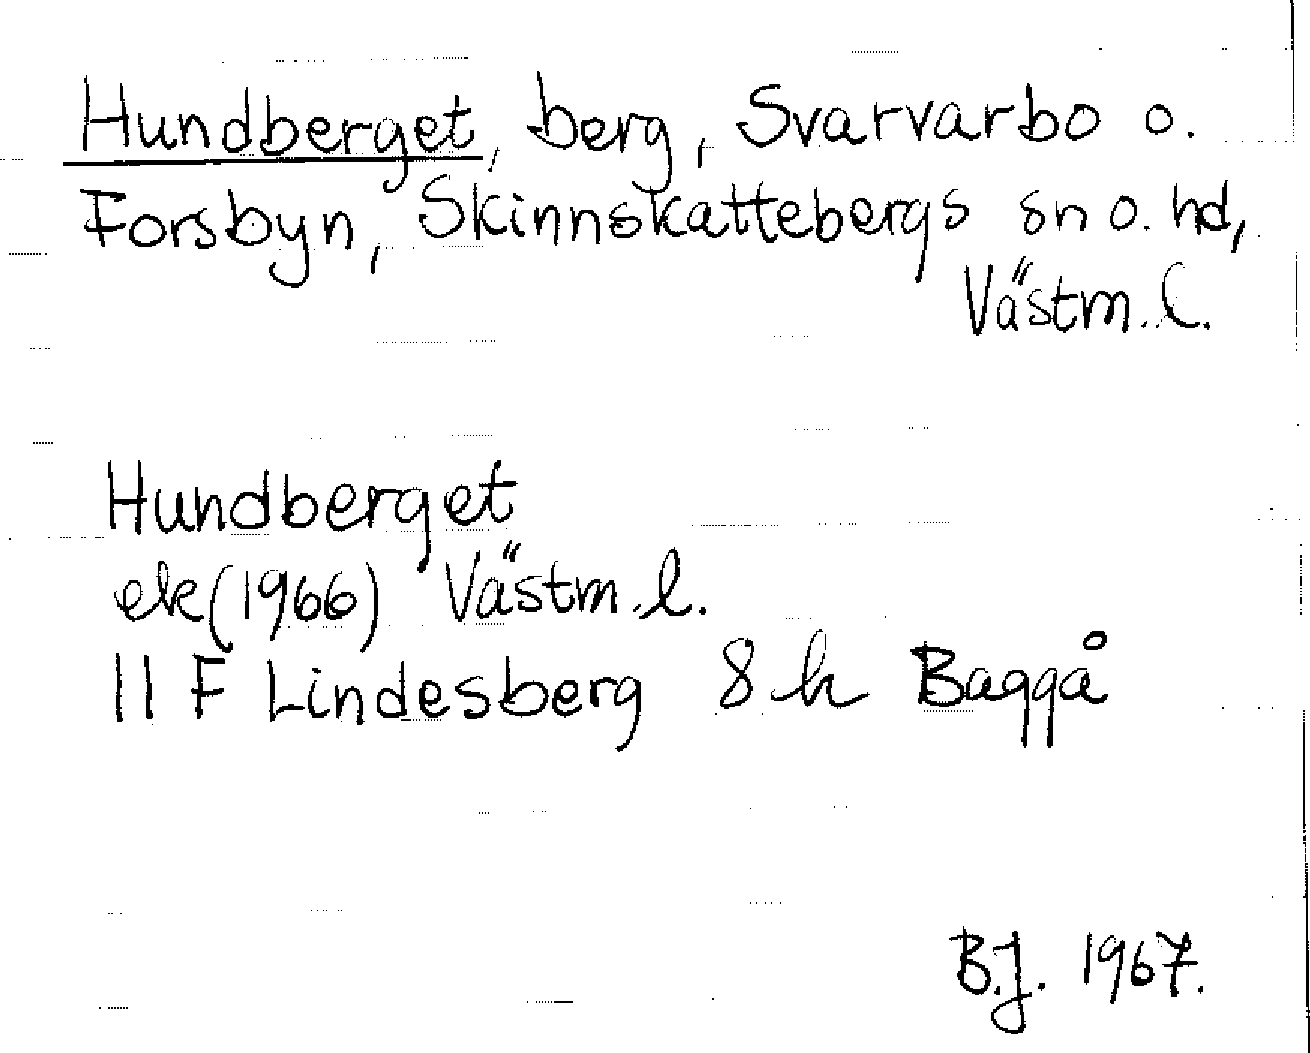 Hundberget, berg, Svarvarbo o.
Forsbyn, Skinnskattebergs sn o. hd,
Västm. l.
Hundberget
ek (1966) Västm. l.
11 F Lindesberg 8 h Baggå
B.J. 1967.